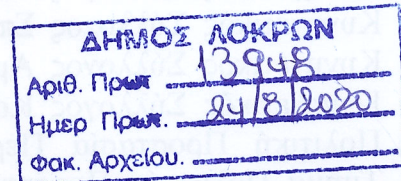 ΔΗΜΟΣ ΛΟΚΡΩΝ
Αριθ. Πρωτ. 13948
Ημερ Πρωτ. 24/8/2020
Φακ. Αρχείου.